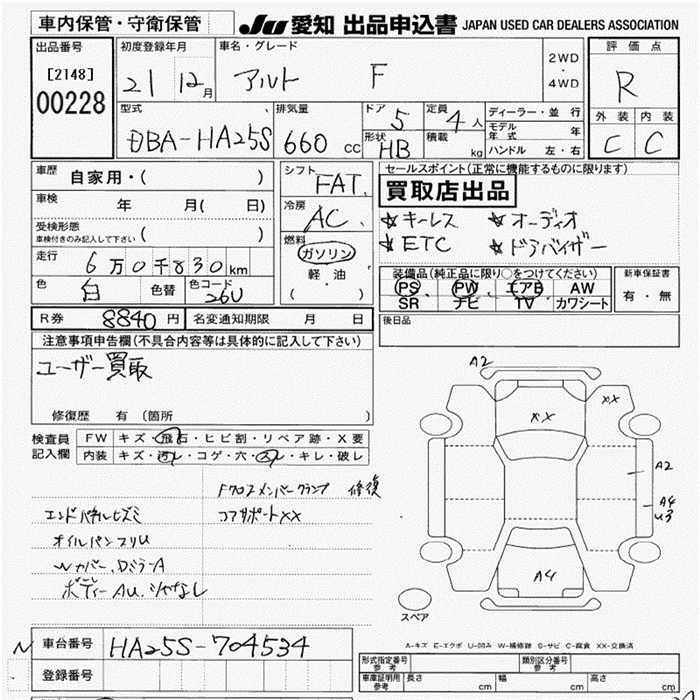 車内保管・守衛保管
JU 愛知 出品申込書 JAPAN USED CAR DEALERS ASSOCIATION
出品番号
[2148]
00228
初度登録年月
21 12月
車名・グレード
アルト F
2WD
・
4WD
評価点
R
外装 内装
C C
型式
DBA-HA25S
排気量
660 CC
ドア 5
形状 HB
定員 4人
積載 kg
ディーラー・並行
モデル年式 年
ハンドル 左・右
車歴 自家用・( )
車検 年 月( 日)
受検形態
車検付きのみ記入して下さい ( )
走行 6万0千830km
色 白 色替 色コード 26U
シフト FAT
冷房 AC
燃料
ガソリン
軽・油
( )
セールスポイント(正常に機能するものに限ります)
買取店出品
★キーレス ★オーディオ
★ETC ★ドラバイザー
装備品(純正品に限り○をつけてください)
PS PW エアB AW
SR ナビ TV カワシート
新車保証書
有・無
R券 8840円 名変通知期限 月 日
後日品
注意事項申告欄(不具合内容等は具体的に記入して下さい)
ユーザー買取
修復歴 有 (箇所 )
検査員
記入欄
FW キズ・飛石・ヒビ割・リペア跡・X要
内装 キズ・汚レ・コゲ・穴・スレ・キレ・破レ
Fクロスメンバークランプ 修復
コアサポートXX
エンドパネルヒズミ
オイルパンフリU
Wカバー、DミラーA
A2
XX
XX
A2
A4
U3
A4
スペア
A-キズ E-エクボ U-凹み W-補修跡 S-サビ C-腐食 XX-交換済
N 車台番号 HA25S-704534
登録番号
型式指定番号
参考
類別区分番号
参考
車庫証明用
参考
長さ cm 幅 cm 高さ cm